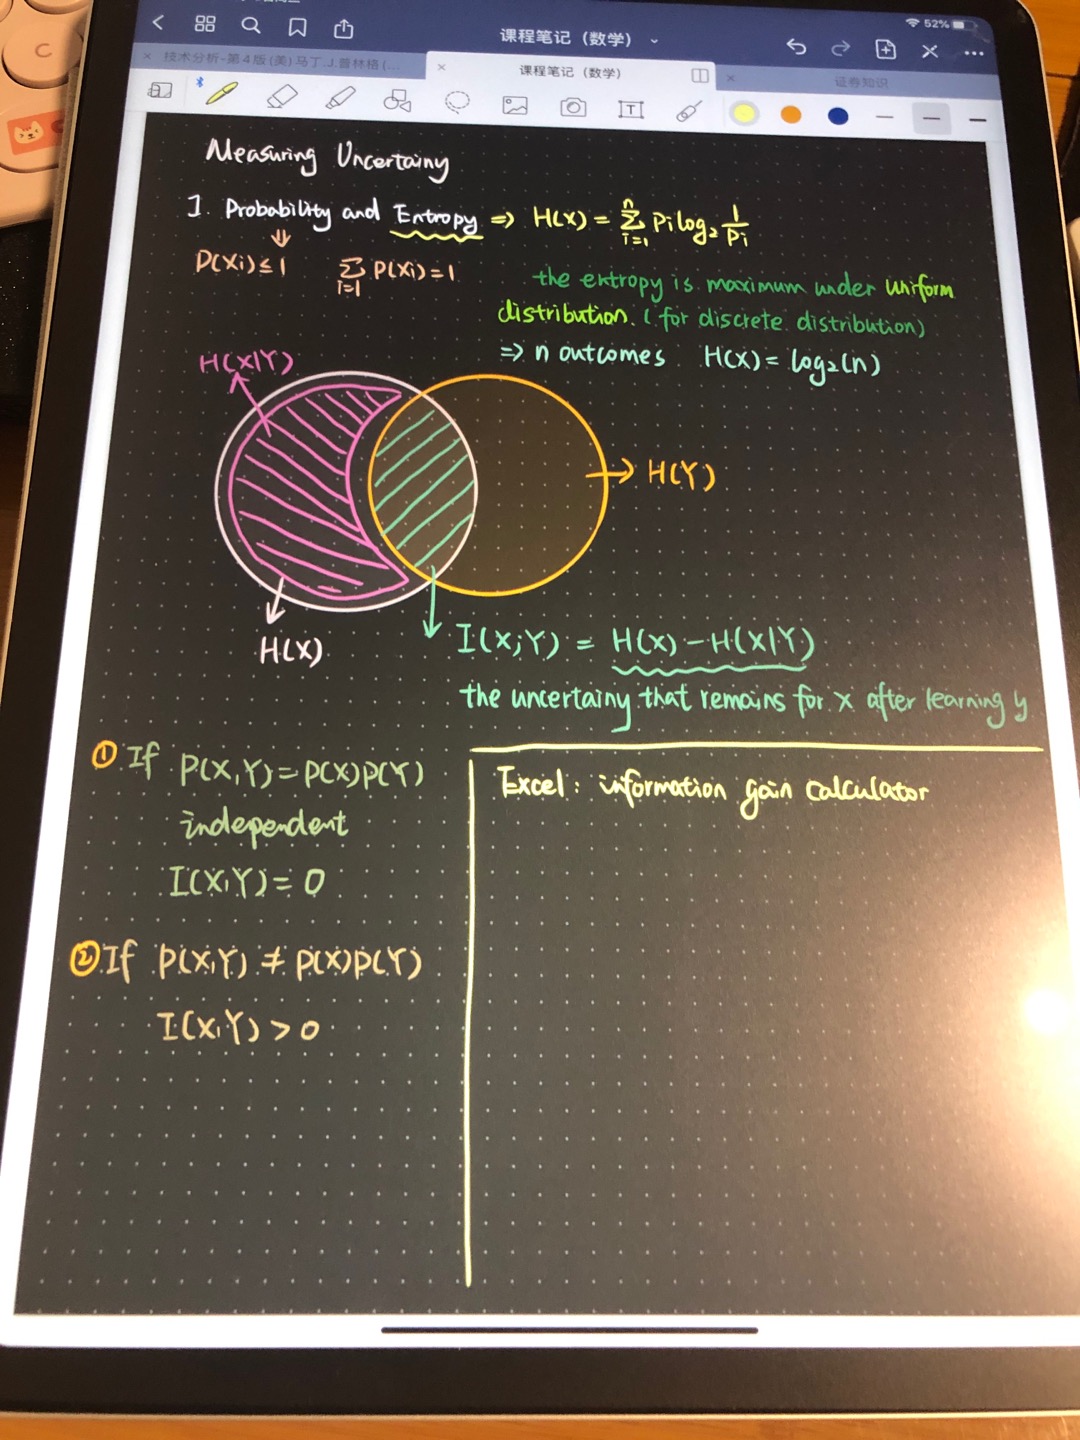 课程笔记（数学）
52%
技术分析-第4版(美)马丁.J.普林格(...
课程笔记（数学）
证券知识
T
C
Measuring Uncertainy
1. Probability and Entropy ⇒ H(X) = ∑ⁿᵢ₌₁ Pi log₂ 1/Pi
P(Xi) ≤ 1 ∑ᵢ₌₁ P(Xi) = 1
the entropy is maximum under uniform
distribution. (for discrete distribution)
⇒ n outcomes H(X) = log₂(n)
H(X|Y)
H(Y)
H(X)
I(X;Y) = H(X) - H(X|Y)
the uncertainy that remains for x after learning y
① If P(X,Y) = P(X)P(Y)
independent
I(X,Y) = 0
② If P(X,Y) ≠ P(X)P(Y)
I(X,Y) > 0
Excel: information gain calculator